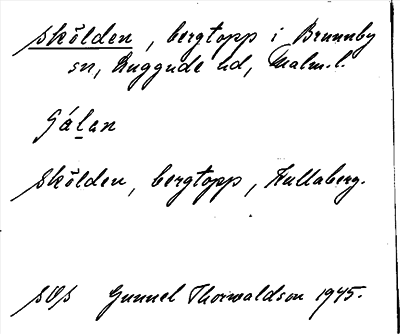 Skölden, bergtopp i Brunnby
sn, Luggude hd, Malm. l.
Gálan
Skölden, bergtopp, Kullaberg.
Gunnel Thorwaldson 1945.